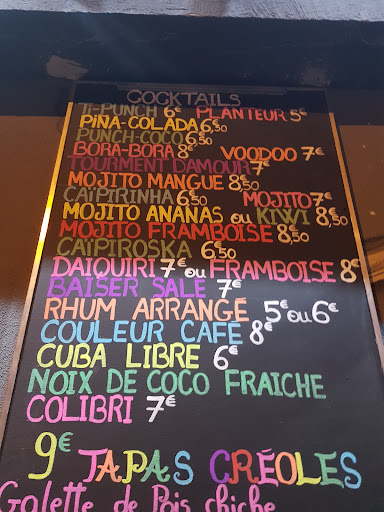 COCKTAILS
Ti-PUNCH 6€ PLANTEUR 5€
PIÑA-COLADA 6,50
PUNCH-COCO 6,50
BORA-BORA 8€ VOODOO 7€
TOURMENT DAMOUR 7€
MOJITO MANGUE 8,50
CAÏPIRINHA 6,50 MOJITO 7€
MOJITO ANANAS ou KIWI 8,50
MOJITO FRAMBOISE 8,50
CAÏPIROSKA 6,50
DAIQUIRI 7€ ou FRAMBOISE 8€
BAISER SALÉ 7€
RHUM ARRANGÉ 5€ ou 6€
COULEUR CAFÉ 8€
CUBA LIBRE 6€
NOIX DE COCO FRAICHE
COLIBRI 7€
9€ TAPAS CRÉOLES
Galette de Pois chiche